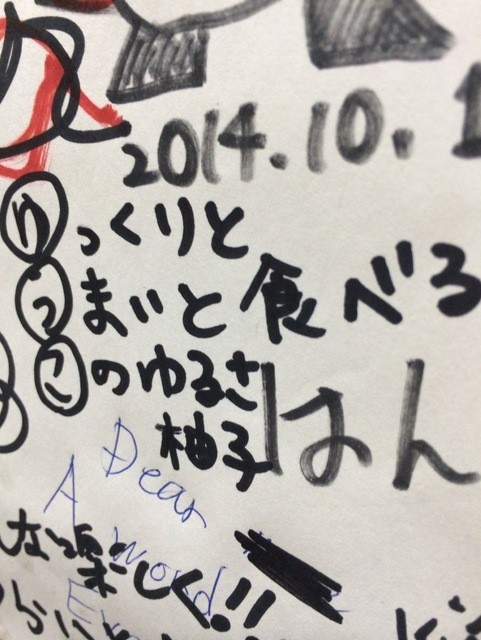 2014.10.1
ゆっくりと
うまいと食べる
このゆるさ
柚子
はん
Dear
A word
楽しく!!